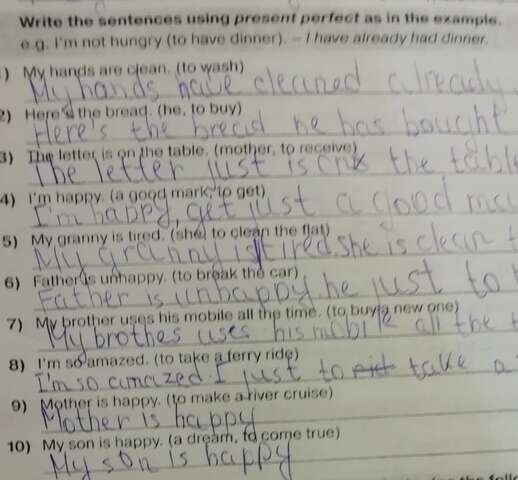 Write the sentences using present perfect as in the example.
e.g. I'm not hungry (to have dinner). – I have already had dinner.
) My hands are clean. (to wash)
My hands have cleaned already
2) Here's the bread. (he, to buy)
Here's the bread he has bought
3) The letter is on the table. (mother, to receive)
The letter just is on the table
4) I'm happy. (a good mark, to get)
I'm happy, get just a good ma
5) My granny is tired. (she, to clean the flat)
My granny is tired. she is clean t
6) Father is unhappy. (to break the car)
Father is unhappy he just to
7) My brother uses his mobile all the time. (to buy a new one)
My brothes uses his mobile all the t
8) I'm so amazed. (to take a ferry ride)
I'm so amazed. I just to take a
9) Mother is happy. (to make a river cruise)
Mother is happy
10) My son is happy. (a dream, to come true)
My son is happy